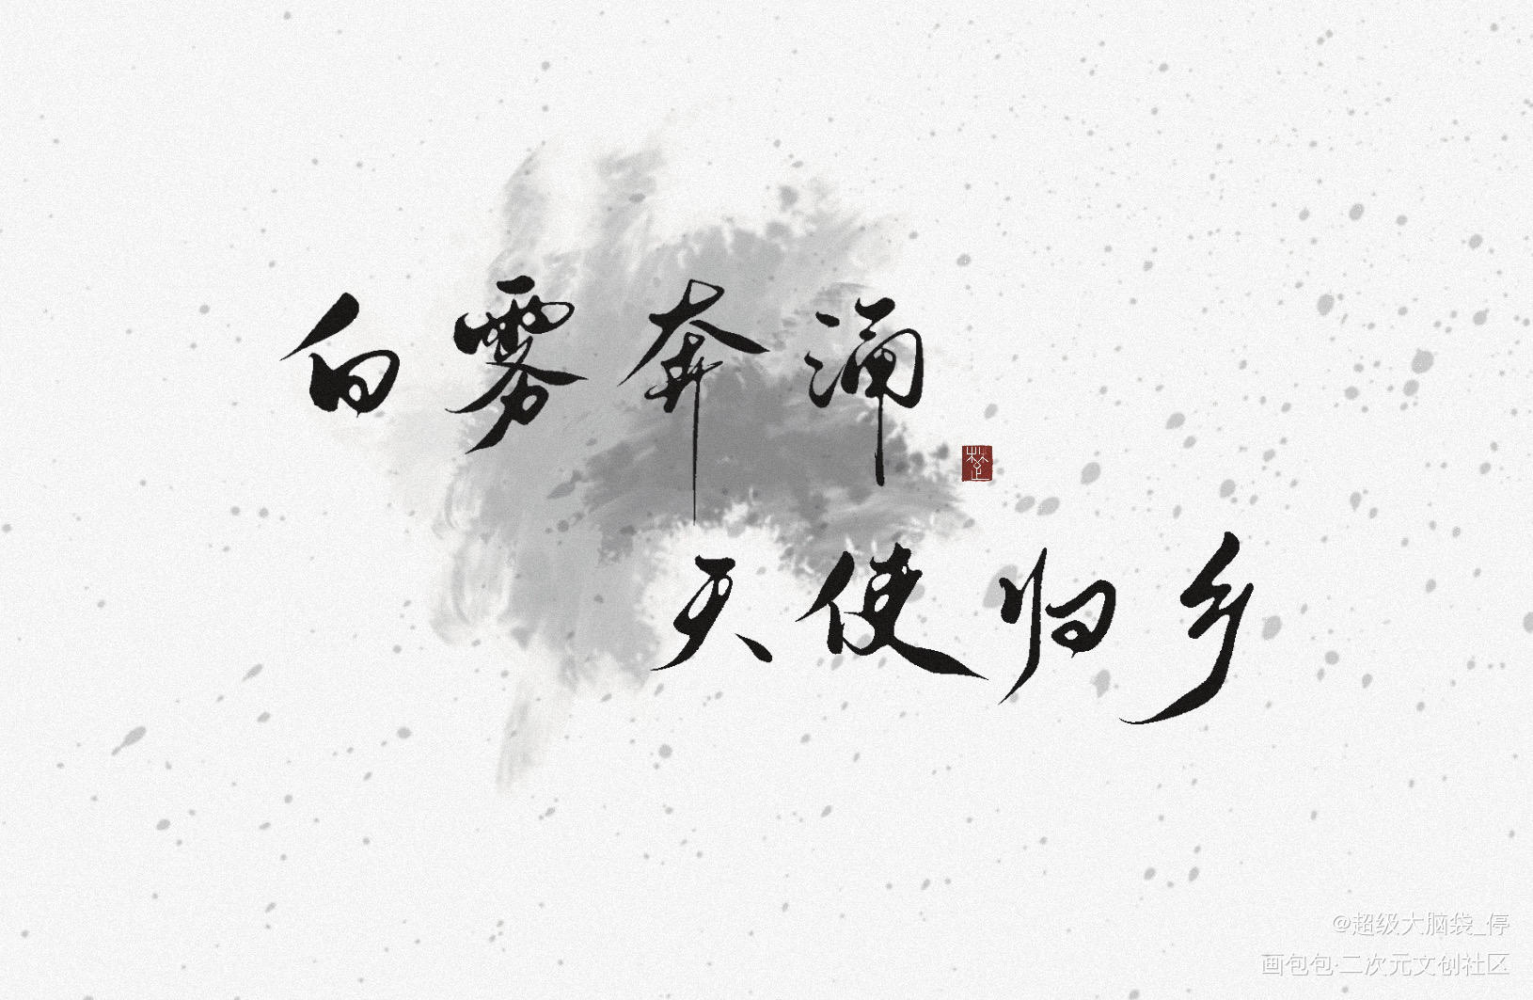 白雾奔涌
天使归乡
@超级大脑袋_停
画包包·二次元文创社区